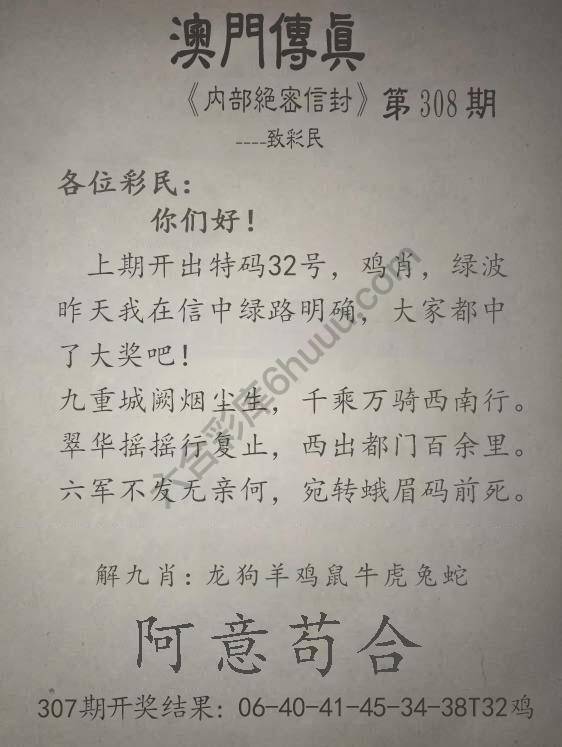 澳門傳眞
《内部絕密信封》第308期
----致彩民
各位彩民：
你们好！
上期开出特码32号，鸡肖，绿波
昨天我在信中绿路明确，大家都中
了大奖吧！
九重城阙烟尘生，千乘万骑西南行。
翠华摇摇行复止，西出都门百余里。
六军不发无亲何，宛转蛾眉码前死。
六合彩库6huuu.com
解九肖：龙狗羊鸡鼠牛虎兔蛇
阿意苟合
307期开奖结果：06-40-41-45-34-38T32鸡